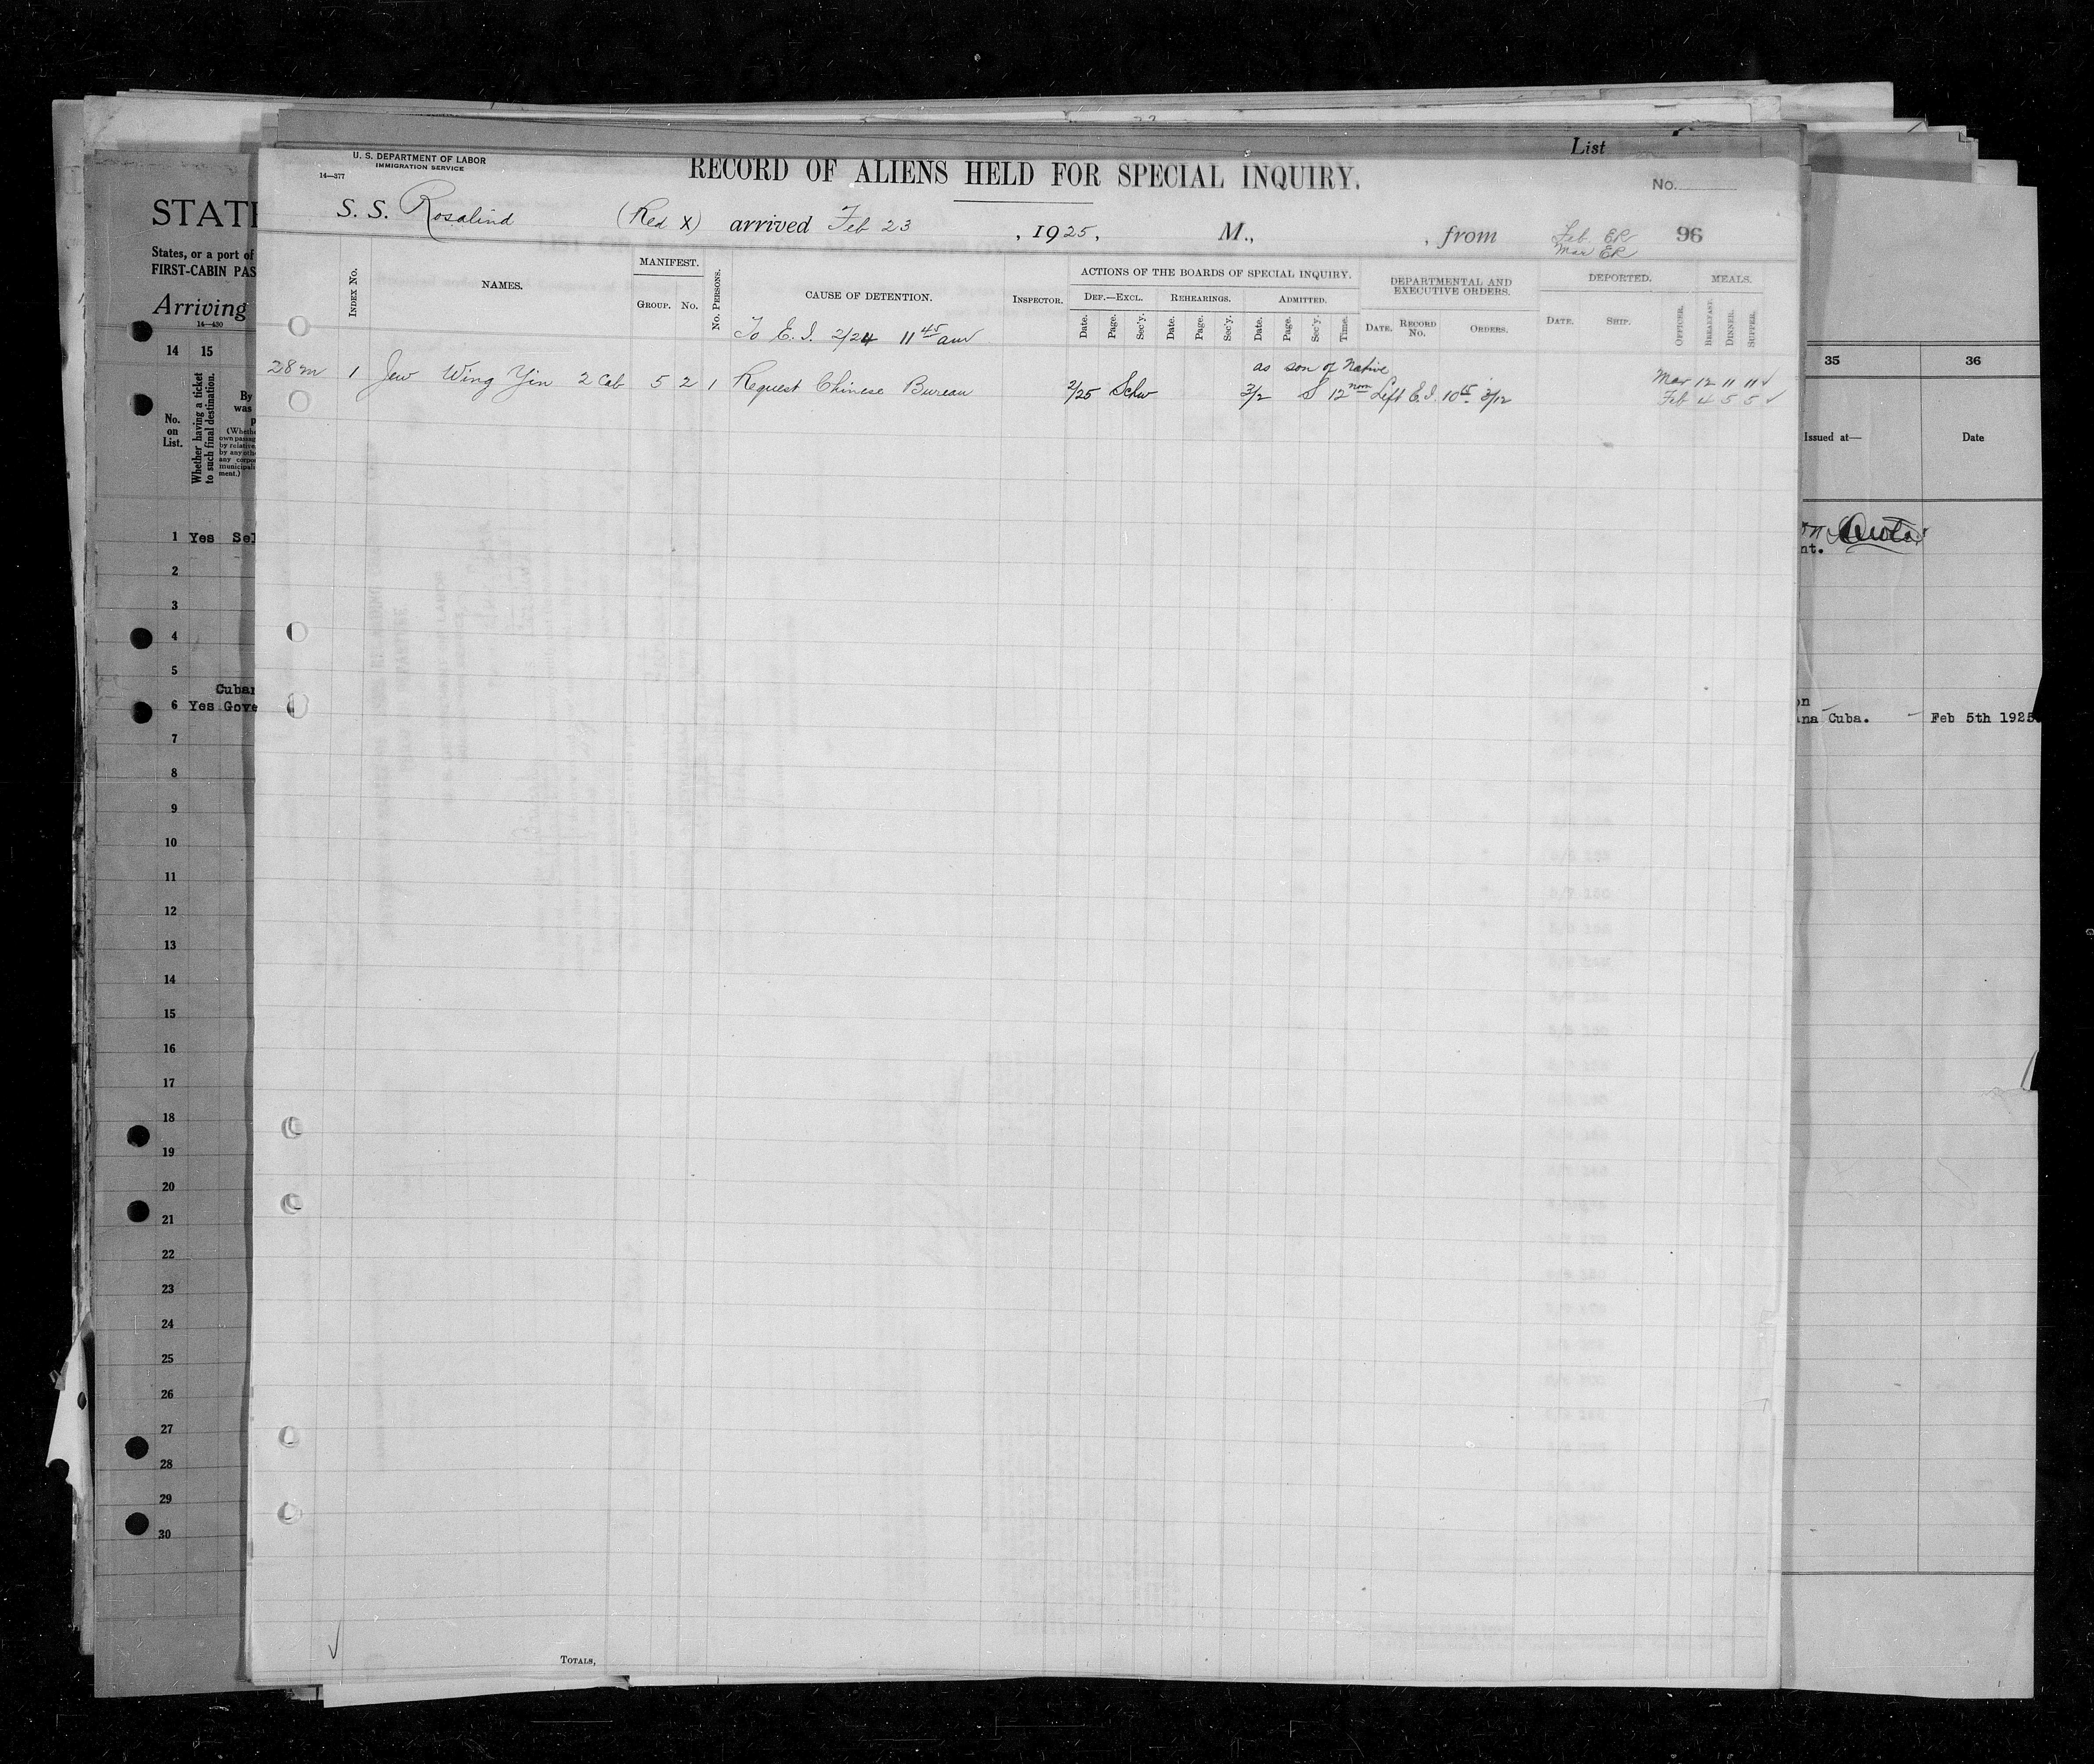 List
U. S. DEPARTMENT OF LABOR
IMMIGRATION SERVICE
14—377
RECORD OF ALIENS HELD FOR SPECIAL INQUIRY.
No.
S. S. Rosalind (Red X) arrived Feb 23, 1925, M., , from
Feb ER
Mar ER
96
INDEX No.
NAMES.
MANIFEST.
GROUP. No.
No. PERSONS.
CAUSE OF DETENTION.
INSPECTOR.
ACTIONS OF THE BOARDS OF SPECIAL INQUIRY.
DEF.—EXCL. REHEARINGS. ADMITTED.
Date. Page. Sec'y. Date. Page. Sec'y. Date. Page. Sec'y. Time.
DEPARTMENTAL AND
EXECUTIVE ORDERS.
DATE. RECORD No. ORDERS.
DEPORTED.
DATE. SHIP.
OFFICER.
MEALS.
BREAKFAST. DINNER. SUPPER.
To E. I. 2/24 11 45 am
as son of Native
28 m 1 Jew Wing Yin 2 Cab 5 2 1 Request Chinese Bureau 2/25 Schw 3/2 S 12 noon Left E.I. 10 15 3/12
Mar 12 11 11 ✓
Feb 4 5 5 ✓
TOTALS,
STATE
States, or a port of
FIRST-CABIN PAS
Arriving
14—430
14 15
No.
on
List.
Whether having a ticket
to such final destination.
By
was
p
(Wheth
own passag
by relative
by any oth
any corpo
municipali
ment.)
1 Yes Sel
2
3
4
5
Cuban
6 Yes Gove
7
8
9
10
11
12
13
14
15
16
17
18
19
20
21
22
23
24
25
26
27
28
29
30
35 36
Issued at— Date
nt.
on
ana Cuba. Feb 5th 1925